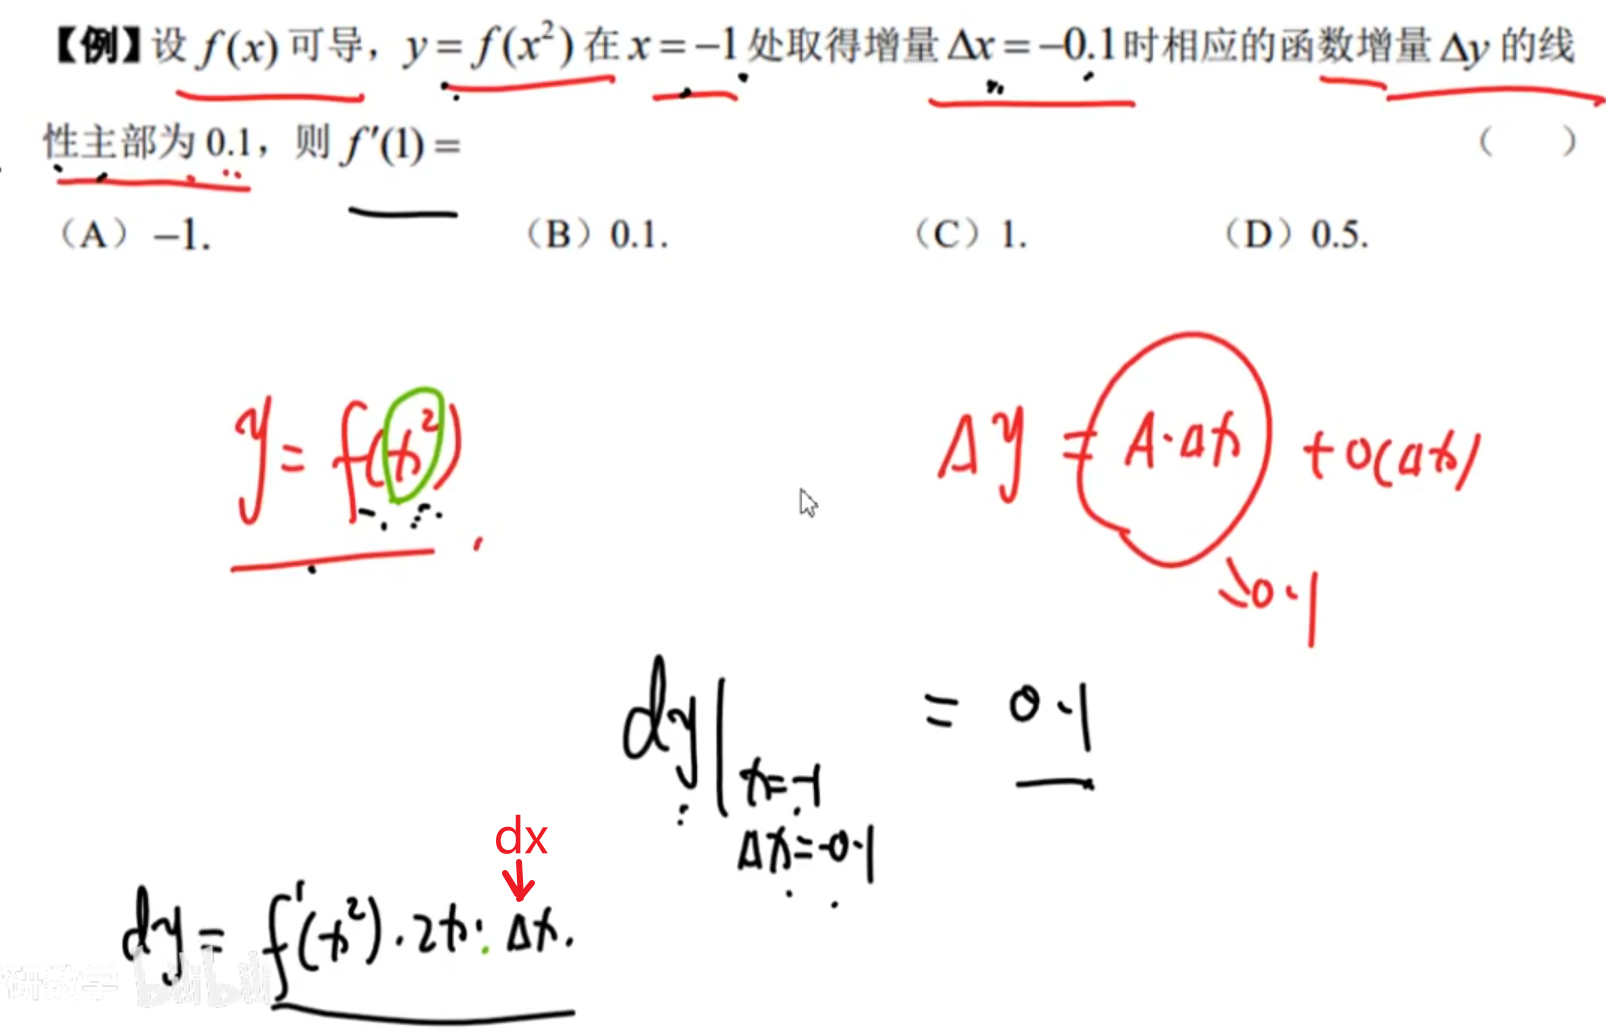 【例】设 f(x) 可导，y = f(x²) 在 x = −1 处取得增量 Δx = −0.1 时相应的函数增量 Δy 的线
性主部为 0.1，则 f′(1) = （ ）
（A）−1. （B）0.1. （C）1. （D）0.5.
y = f(x²)
Δy = A·Δx + o(Δx)
=0.1
dy|x=-1 = 0.1
Δx=-0.1
dx
↓
dy = f′(x²)·2x·Δx.
研数学 bilibili